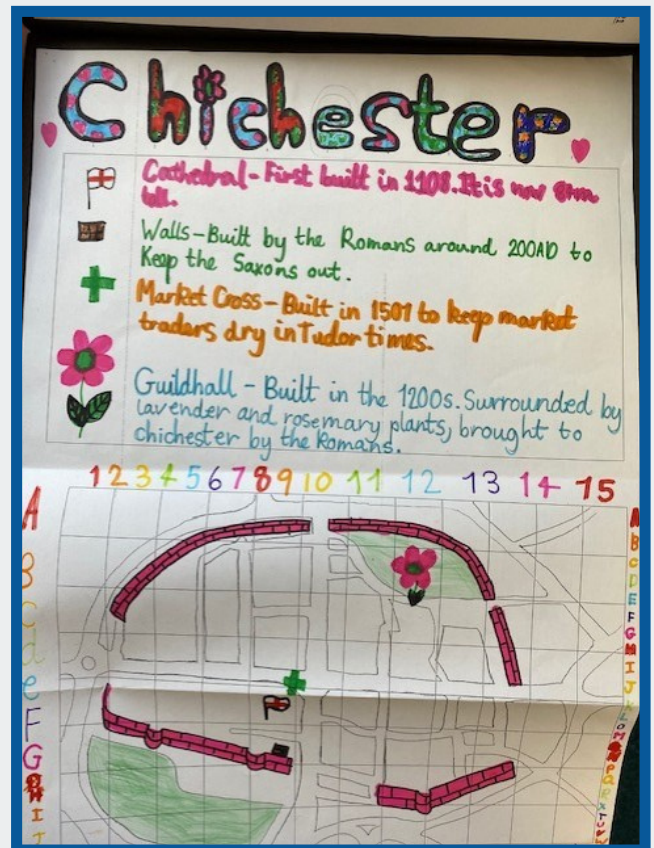 Chichester
Cathedral - First built in 1108. It is now 81m
tall.
Walls - Built by the Romans around 200AD to
Keep the Saxons out.
Market Cross - Built in 1501 to keep market
traders dry in Tudor times.
Guildhall - Built in the 1200s. Surrounded by
lavender and rosemary plants, brought to
chichester by the Romans.
1 2 3 4 5 6 7 8 9 10 11 12 13 14 15
A A
B B
C C
d D
e E
F F
G G
H H
I I
J J